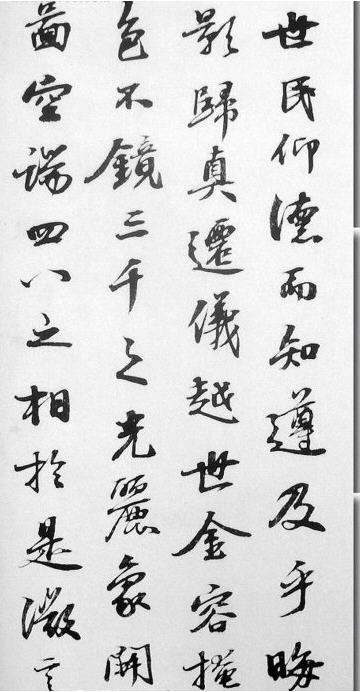 世民仰德而知遵及乎晦
影歸真遷儀越世金容掩
色不鏡三千之光麗象開
圖空端四八之相於是微言